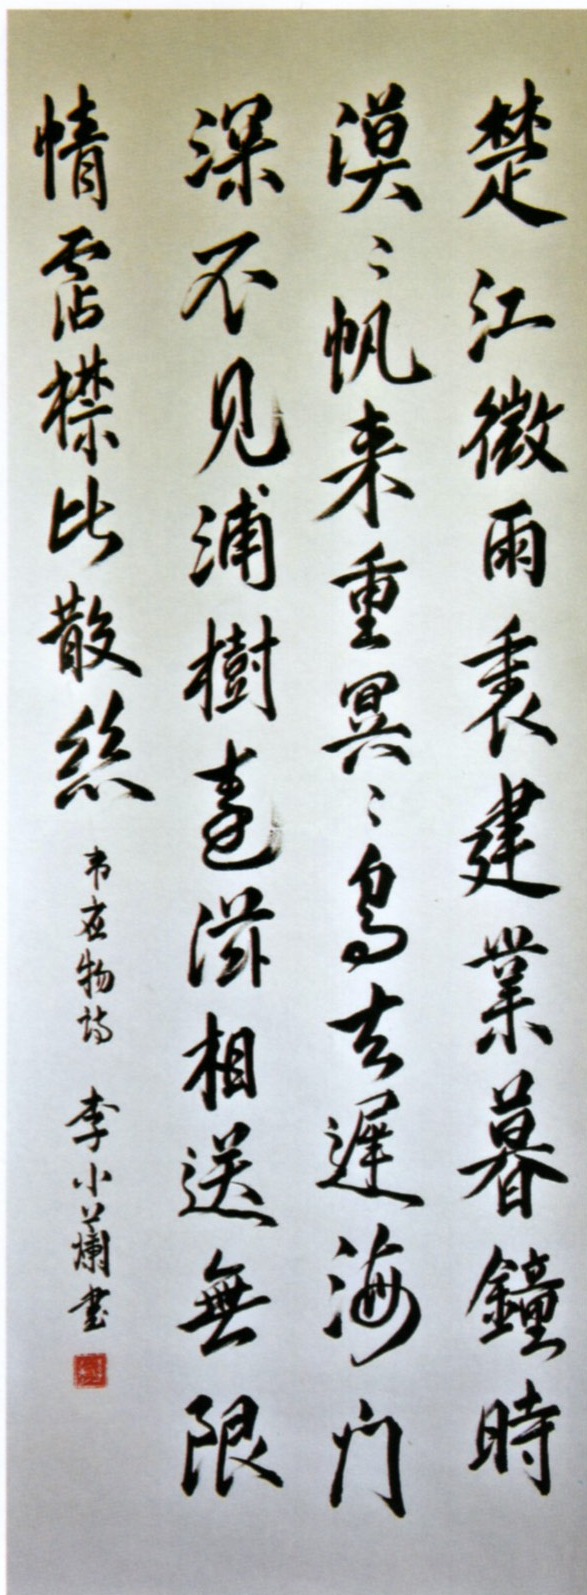 楚江微雨裏建業暮鐘時
漠〻帆来重冥〻鳥去遲海门
深不见浦樹遠滋相送無限
情霑襟比散絲
韦应物詩 李小書